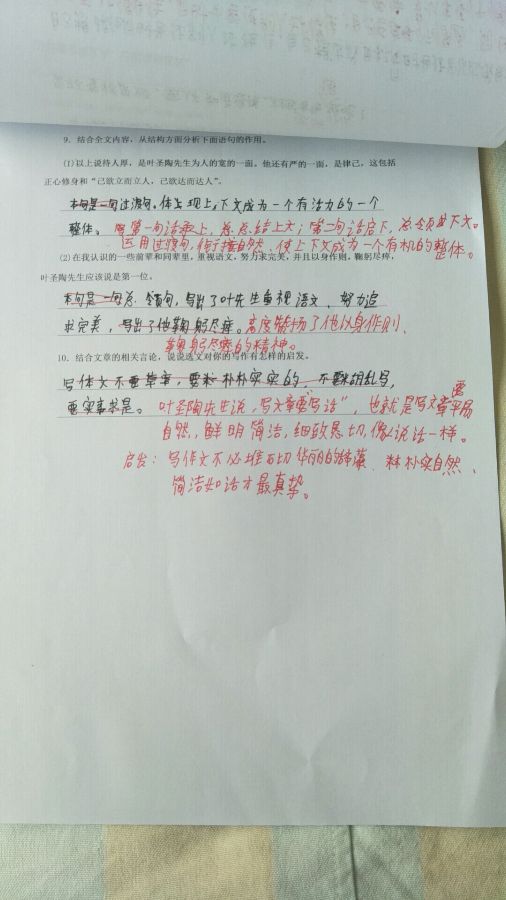 9．结合全文内容，从结构方面分析下面语句的作用。
(1)以上说待人厚，是叶圣陶先生为人的宽的一面。他还有严的一面，是律己，这包括
正心修身和“己欲立而立人，己欲达而达人”。
本句是一句过渡句。使上下文成为一个有活力的一个
整体。 第一句话承上，总结上文；第二句话启下，总领起下文。
运用过渡句，使行文自然，使上下文成为一个有机的整体。
(2)在我认识的一些前辈和同辈里，重视语文，努力求完美，并且以身作则，鞠躬尽瘁，
叶圣陶先生应该说是第一位。
本句是一句总领句，写出了叶先生重视语文、努力追
求完美，写出了他鞠躬尽瘁。高度赞扬了他以身作则、
鞠躬尽瘁的精神。
10．结合文章的相关言论，说说选文对你的写作有怎样的启发。
写作文不要草率，要朴朴实实的，不要胡乱写，
要实事求是。 叶圣陶先生说，写文章要“写话”，也就是写文章要平易
自然，鲜明简洁，细致恳切，像说话一样。
启发：写作文不必堆砌华丽的辞藻、朴实自然、
简洁如话才最真挚。